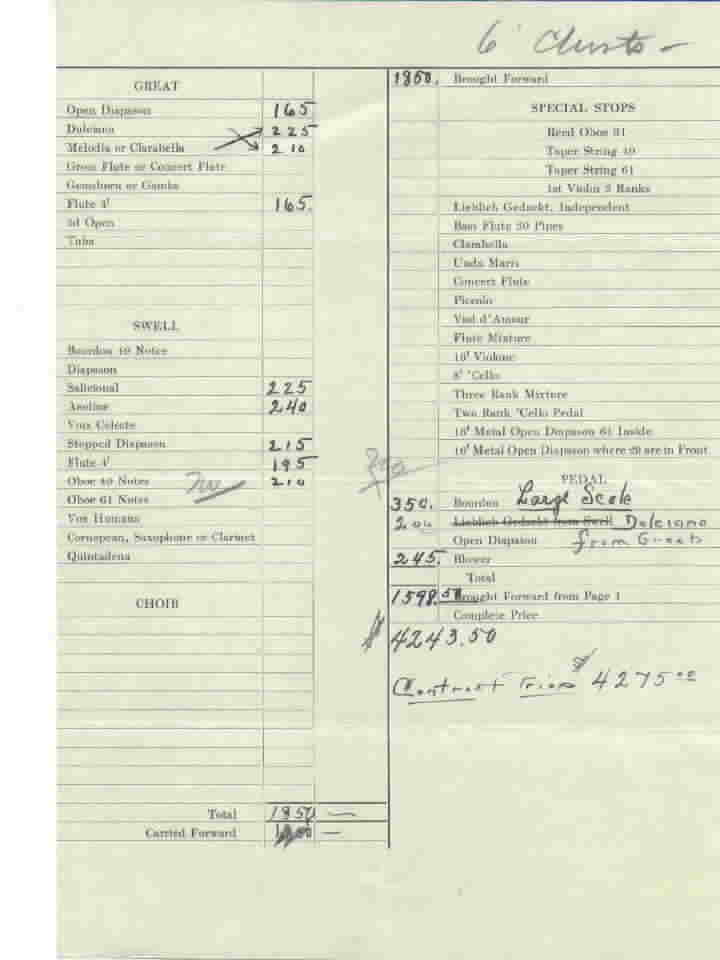 6' Chests -
GREAT
Open Diapason 165
Dulciana 225
Melodia or Clarabella 210
Gross Flute or Concert Flute
Gemshorn or Gamba
Flute 4' 165.
2d Open
Tuba
SWELL
Bourdon 49 Notes
Diapason
Salicional 225
Aeoline 240
Voix Celeste
Stopped Diapason 215
Flute 4' 195
Oboe 49 Notes 210
Oboe 61 Notes
Vox Humana
Cornopean, Saxophone or Clarinet
Quintadena
CHOIR
Total 1850 —
Carried Forward 1850 —
1850. Brought Forward
SPECIAL STOPS
Reed Oboe 61
Taper String 49
Taper String 61
1st Violin 3 Ranks
Lieblich Gedackt, Independent
Bass Flute 30 Pipes
Clarabella
Unda Maris
Concert Flute
Piccolo
Viol d'Amour
Flute Mixture
16' Violone
8' 'Cello
Three Rank Mixture
Two Rank 'Cello Pedal
16' Metal Open Diapason 61 Inside
16' Metal Open Diapason where 29 are in Front
PEDAL
350. Bourdon Large Scale
200 Lieblich Gedackt from Swell Dulciana
Open Diapason from Great
245. Blower
Total
1598.50 Brought Forward from Page 1
Complete Price
$4243.50
Contract Price $4275.00